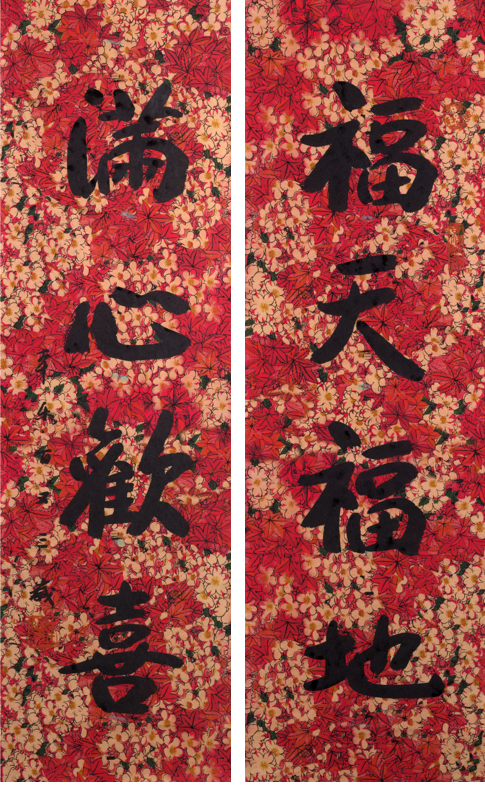 福天福地
满心歡喜